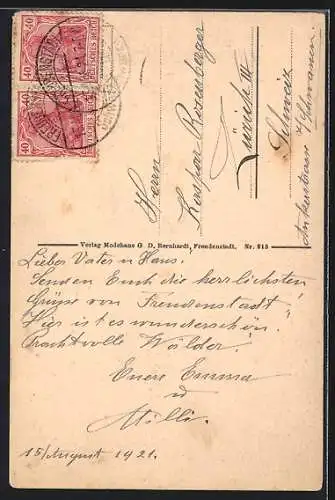 40 DEUTSCHES REICH 40
40 DEUTSCHES REICH 40
Herrn
Kaspar
Zürich III
Schweiz
Verlag Modehaus G. D. Bernhardt, Freudenstadt. Nr. 815
Lieber Vater u Hans!
Senden Euch die herrlichsten
Grüsse von Freudenstadt
Hier ist es wunderschön.
Prachtvolle Wälder.
Euere Emma
u
Milli.
15/August 1921.